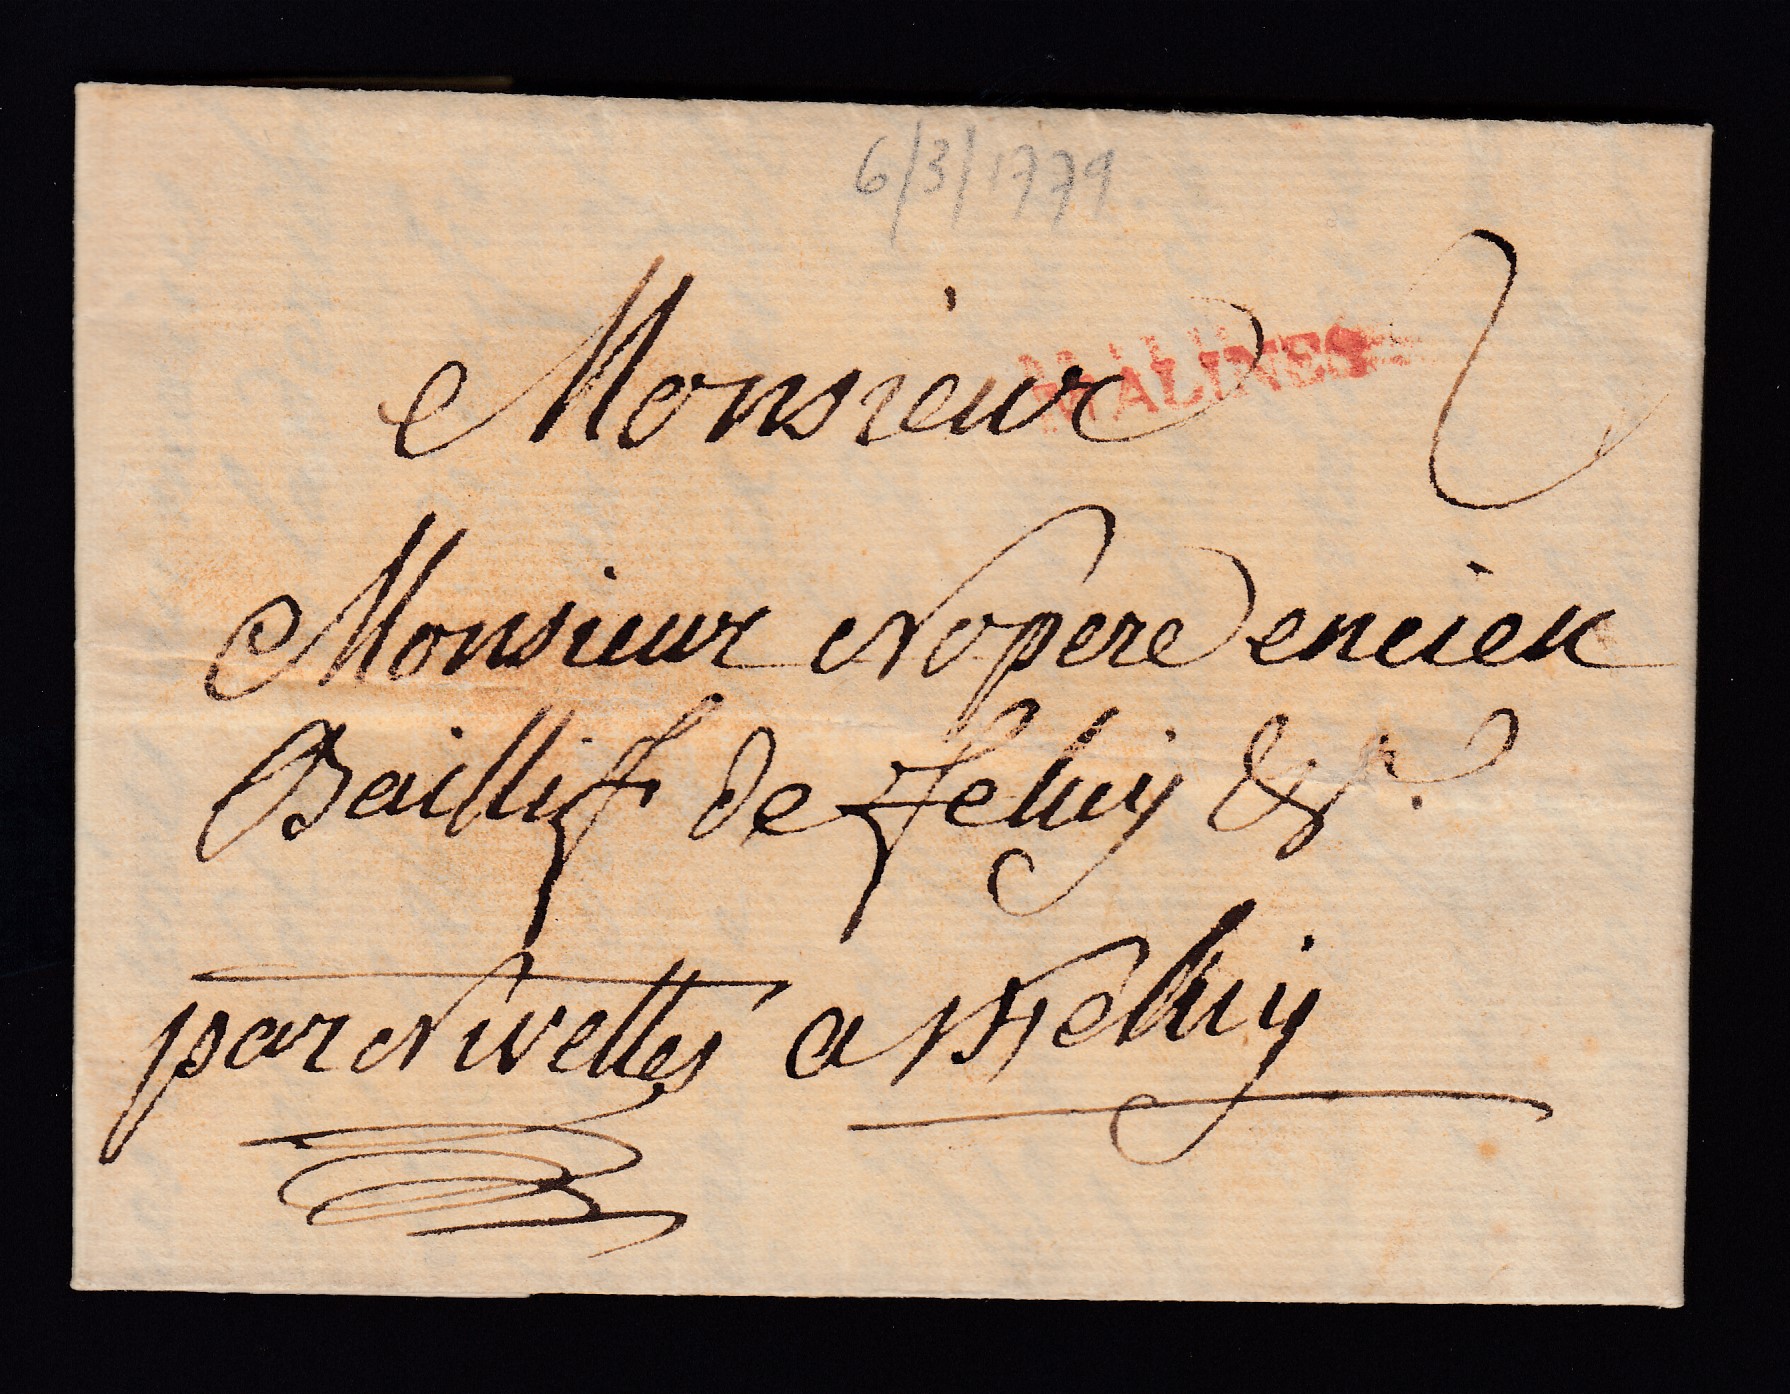 6/3/1779.
Monsieur
MALINES
2
Monsieur Nopere encien
Bailliff de feluy &ª.
par Nivelles a Feluy